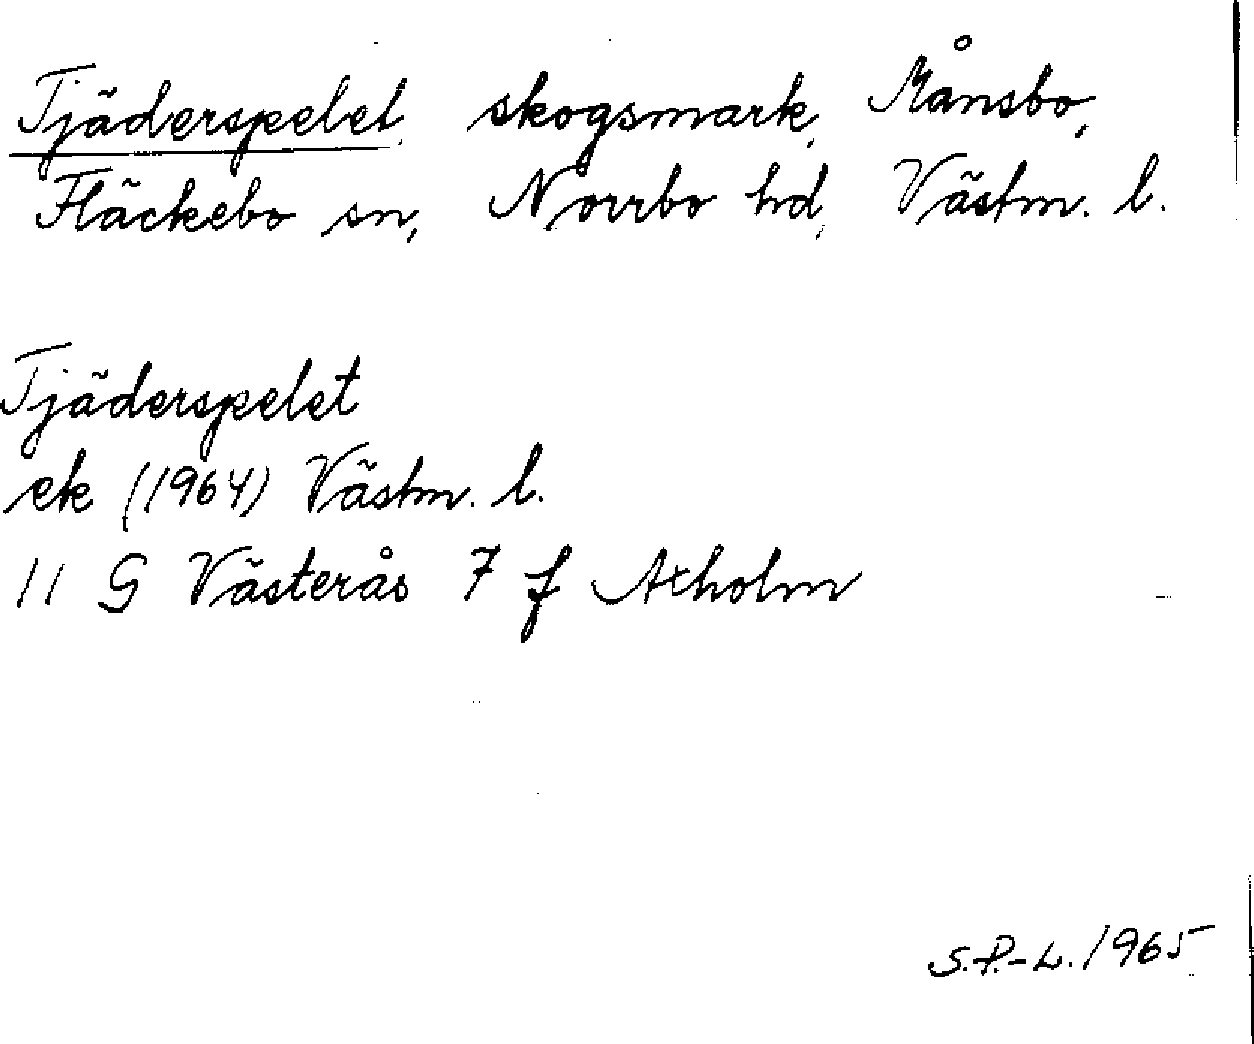 Tjäderspelet, skogsmark, Månsbo,
Fläckebo sn, Norrbo hd, Västm. l.
Tjäderspelet
ek (1964) Västm. l.
11 G Västerås 7 f Axholm
S.P.-L. 1965